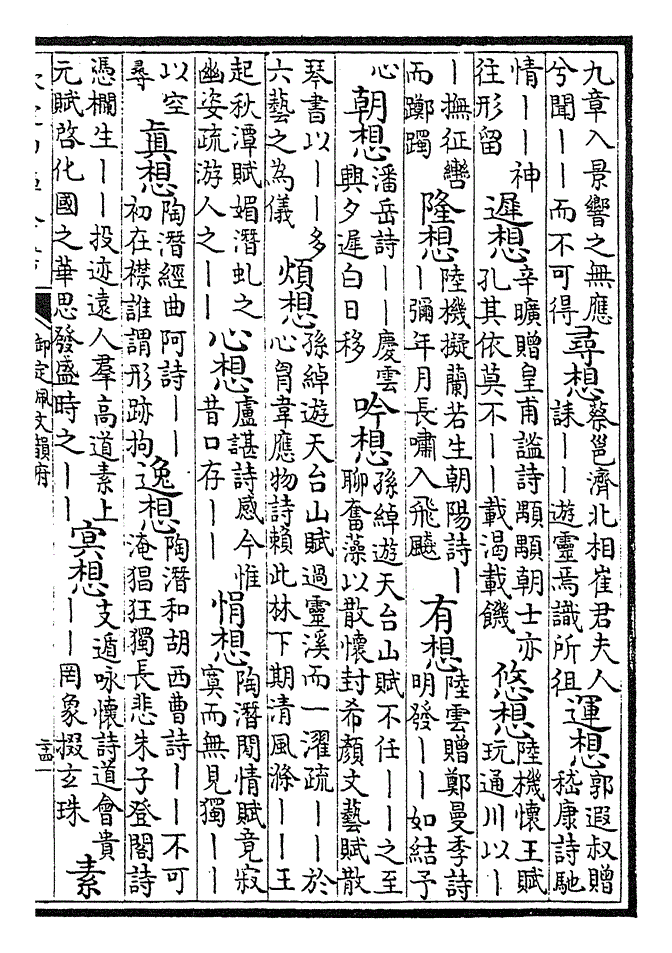 九章入景響之無應
兮聞——而不可得
尋想
蔡邕濟北相崔君夫人
誄——遊靈焉識所徂
運想
郭遐叔贈
嵇康詩馳
情——神
往形留
遲想
辛曠贈皇甫謐詩顒顒朝士亦
孔其依莫不——載渴載饑
悠想
陸機懷王賦
玩通川以—
—撫征轡
而躑躅
隆想
陸機擬蘭若生朝陽詩—
—彌年月長嘯入飛飈
有想
陸雲贈鄭曼季詩
明發——如結予
心
朝想
潘岳詩——慶雲
興夕遲白日移
吟想
孫綽遊天台山賦不任——之至
聊奮藻以散懷封希顏文藝賦散
琴書以——多
六藝之為儀
煩想
孫綽遊天台山賦過靈溪而一濯疏——於
心胷韋應物詩賴此林下期清風滌——王
起秋潭賦媚潛虬之
幽姿疏游人之——
心想
盧諶詩感今惟
昔口存——
悁想
陶潛閒情賦竟寂
寞而無見獨——
以空
尋
眞想
陶潛經曲阿詩——
初在襟誰謂形跡拘
逸想
陶潛和胡西曹詩——不可
淹猖狂獨長悲朱子登閣詩
憑欄生——投迹遠人羣高道素上
元賦啓化國之華思發盛時之——
冥想
支遁咏懷詩道會貴
——罔象掇玄珠
素
御定佩文韻府